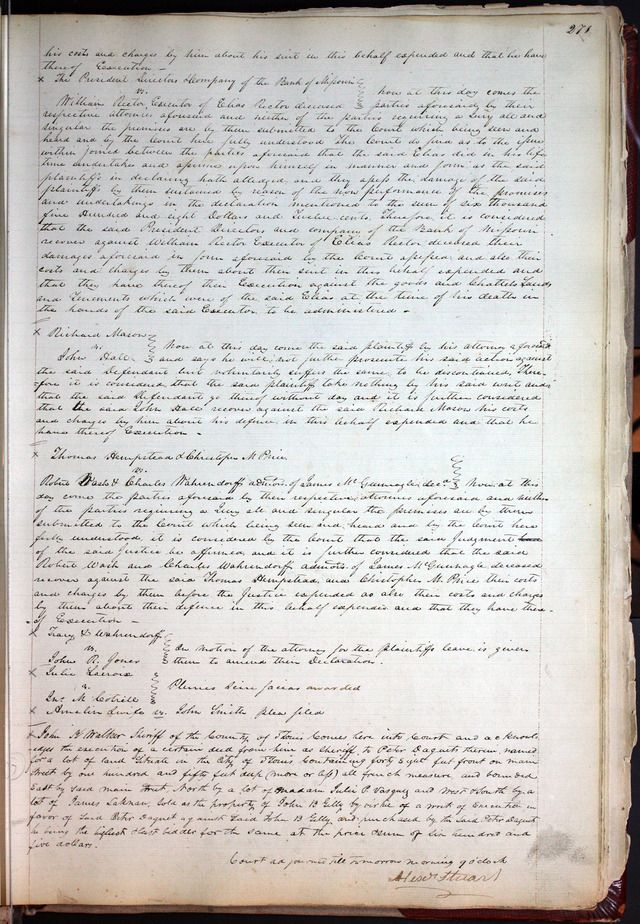 271
his costs and charges by him about his suit in this behalf expended and that he have
thereof Execution —
x The President Directors & Company of the Bank of Missouri
vs.
now at this day comes the
William Rector Executor of Elias Rector deceased parties aforesaid by their
respective attornies aforesaid and neither of the parties requiring a Jury all and
singular the premises are by them submitted to the Court which being seen and
heard and by the Court here fully understood The Court do find as to the Issue
within joined between the parties aforesaid that the said Elias did in his life
time undertake and assume upon himself in manner and form as the said
plaintiffs in declaring hath alledged and they assess the damage of the said
plaintiffs by them sustained by reason of the non performance of the promises
and undertakings in the declaration mentioned to the sum of six thousand
five Hundred and eight Dollars and Twelve cents. Therefore it is considered
that the said President Directors and company of the Bank of Missouri
recover against William Rector Executor of Elias Rector deceased their
damages aforesaid in form aforesaid by the Court assessed and also their
costs and charges by them about their suit in this behalf expended and
that they have thereof their Execution against the goods and Chattels Lands
and Tenements which were of the said Elias at the time of his death in
the hands of the said Executor to be administered —
x Richard Mason
vs.
Now at this day come the said plaintiff by his attorney aforesaid
John Hall and says he will not further prosecute his said action against
the said Defendant but voluntarily suffers the same to be discontinued, There-
-fore it is considered that the said plaintiff take nothing by his said writ and
that the said Defendant go thereof without day and it is further considered
that the said John Hall recover against the said Richard Mason his costs
and charges by him about his defence in this behalf expended and that he
have thereof Execution —
x Thomas Hempstead & Christopher M. Price
vs.
Robert Wash & Charles Wahrendorff admtors. of James McGunnegle decd. Now at this
day come the parties aforesaid by their respective attornies aforesaid and neither
of the parties requiring a Jury all and singular the premises are by them
submitted to the Court which being seen and heard and by the Court here
fully understood, it is considered by the Court that the said Judgment
of the said Justice be affirmed and it is further considered that the said
Robert Wash and Charles Wahrendorff admtors. of James McGunnegle deceased
recover against the said Thomas Hempstead, and Christopher M. Price their costs
and charges by them before the Justice expended as also their costs and charges
by them about their defence in this behalf expended and that they have there-
-of Execution —
x Tracy & Wahrendorff
vs.
On motion of the attorney for the plaintiffs leave is given
John R. Jones them to amend their Declaration.
x Julie Lacroix
vs.
Pluries Scire facias awarded
Jno. M. Cotrill
x vs. John Smith plea filed
x John K Walker Sheriff of the County of St Louis Comes here into Court and acknowl-
edges the execution of a certain deed from him as sheriff to Peter Daguet therein named
for a lot of land Situate in the City of St Louis Containing forty Eight feet front on main
Street by one hundred and fifty feet deep (more or less) all french measure and bounded
East by Said main Street, North by a lot of Madam Julie P Vasquez and West & South by a
lot of James Lakenan, Sold as the property of John B Gelly by virtue of a writ of Execution in
favor of Said Peter Daguet against Said John B Gelly and purchased by the Said Peter Daguet
he being the highest & last bidder for the same at the price & sum of Six hundred and
five dollars.
Court adjourned till tomorrow morning 9 oclock
Alexr. Stuart